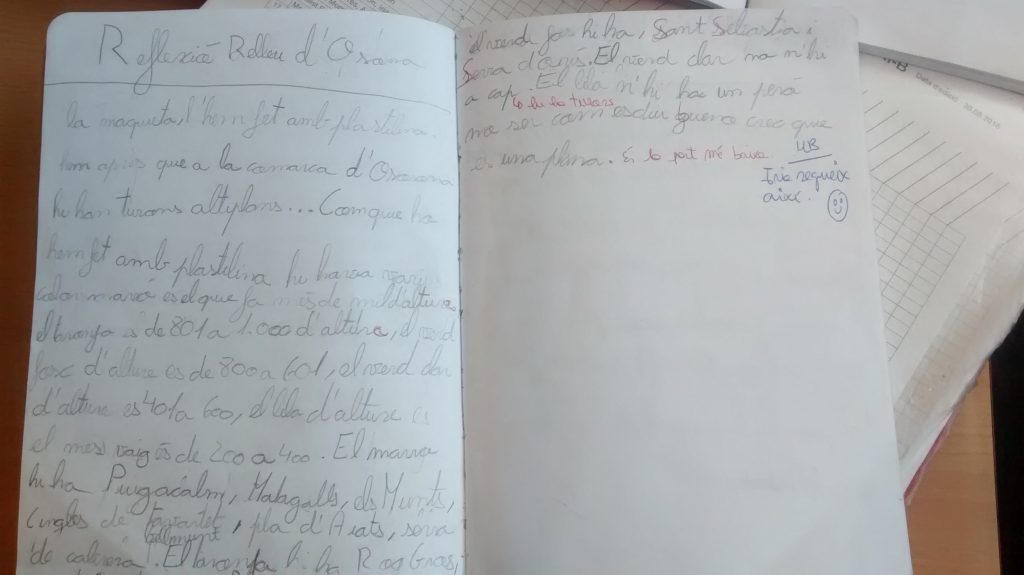 Reflexió Relleu d'Osona
la maqueta, l'hem fet amb plastilina.
hem aprés que a la comarca d'Osona
hi han turons altyplans... Com que ha
hem fet amb plastilina hi havia
color marró és el que fa més de mil d'altura,
el taronja és de 801 a 1.000 d'altura, el verd
fosc d'alture és de 800 a 601, el verd clar
d'alture és 401 a 600, el lila d'alture és
el mes vaig és de 200 a 400. El marro
hi ha Puigsacalm, Matagalls, els Munts,
Cingles de tavartet, pla d'Aiats, sèrra
bellmunt
de cabrera. El taronja hi ha Roc Gros,
el verd fosc hi ha, Sant Sebastia i
Serra d'. El verd clar no n'hi
a cap. El lila n'hi ha un però
hi ha turons
no se com es diu bueno crec que
és una plana. És la part més baixa.
UB
segueix
així.